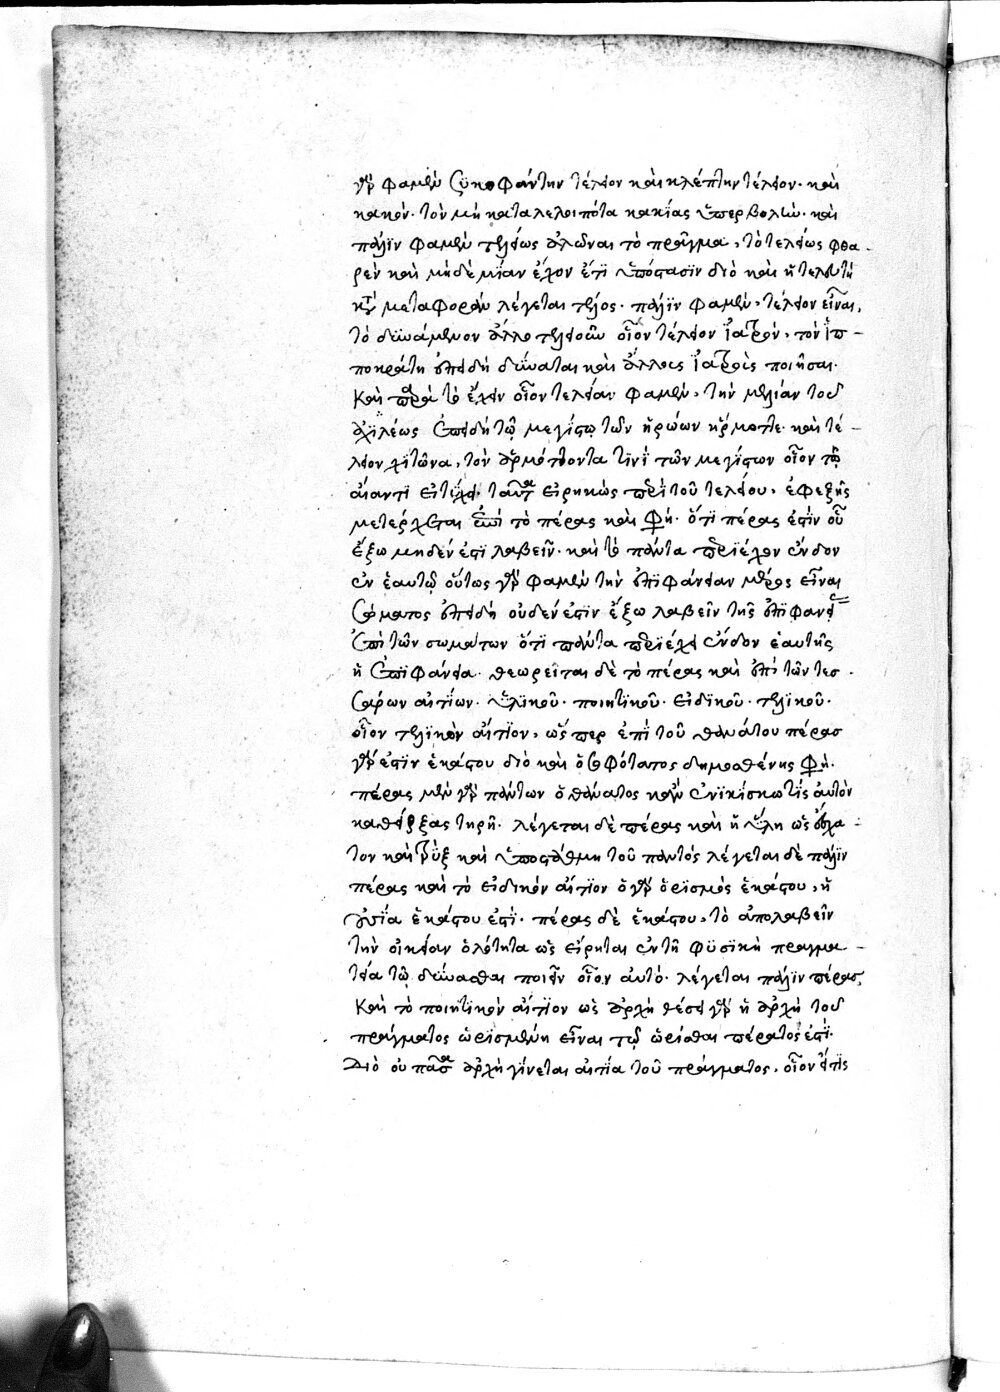 γὰρ φαμὲν συκοφάντην τέλειον καὶ κλέπτην τέλειον· καὶ
κακὸν· τὸν μὴ καταλελοιπότα κακίας ὑπερβολὴν· καὶ
πάλϊν φαμὲν τελείως ἁλῶναι τὸ πρᾶγμα, τὸ τελείως φθα-
ρὲν καὶ μηδὲ μΐαν ἔχον ἔτϊ ὑπόστασϊν διὸ καὶ ἡ τελευτὴ
κατὰ μεταφορὰν λέγεται τέλος· πάλϊν φαμὲν, τέλειον εἶναι,
τὸ δϋνάμενον ἄλλο τελειοῦν οἷον τέλειον ἰατρὸν, τὸν ἱπ-
ποκράτη ἐπειδὴ δύναται καὶ ἄλλους ἰατροὺς ποιῆσαι·
Καὶ παρὰ τὸ ἔχειν οἷον τελείαν φαμὲν, τὴν μελίαν τοῦ
ἀχιλέως ἐπειδὴ τῷ μεγίστῳ τῶν ἡρώων ἥρμοττε· καὶ τέ-
λειον χιτῶνα, τὸν ἁρμόττοντα τϊνῒ τῶν μεγίστων οἷον τῷ
αἴαντϊ εἰ τύχει· ταῦτα εἰρηκὼς περὶ τοῦ τελείου, ἐφεξῆς
μετέρχεται ἐπὶ τὸ πέρας καὶ φησὶ· ὅτϊ πέρας ἐστϊν οὗ
ἔξω μηδέν ἐστϊ λαβεῖν· καὶ τὸ πάντα περϊέχον ἔνδον
ἐν ἑαυτῷ οὕτως γὰρ φαμὲν τὴν ἐπϊφάνειαν πέρας εἶναι
σώματος ἐπειδὴ οὐδέν ἐστϊν ἔξω λαβεῖν τῆς ἐπϊφανεί
ἐπὶ τῶν σωμάτων ὅτϊ πάντα περϊέχει ἔνδον ἑαυτῆς
ἡ ἐπϊφάνεια· θεωρεῖται δὲ τὸ πέρας καὶ ἐπὶ τῶν τεσ-
σάρων αἰτίων· ὑλϊκοῦ· ποιητϊκοῦ· εἰδϊκοῦ· τελϊκοῦ·
οἷον τελϊκὸν αἴτϊον, ὥσπερ ἐπὶ τοῦ θανάτου πέρασ
γάρ ἐστϊν ἑκάστου διὸ καὶ ὁ σοφώτατος δημοσθένης φησὶ·
πέρας μὲν γὰρ πάντων ὁ θάνατος κἂν ἐν οἰκίσκω τϊς αὑτὸν
καθείρξας τηρῆ· λέγεται δὲ πέρας καὶ ἡ ὕλη ὡς ἔσχα-
τον καὶ τρὺξ καὶ ὑποστάθμη τοῦ παντός λέγεται δὲ πάλϊν
πέρας καὶ τὸ εἰδικόν αἴτϊον ὁ γὰρ ὁρϊσμὸς ἑκάστου, ἡ
οὐσΐα ἑκάστου ἐστϊ· πέρας δὲ ἑκάστου, τὸ ἀπολαβεῖν
τὴν οἰκείαν ὁλότητα ὡς εἴρηται ἐν τῆ φϋσϊκῆ πραγμα-
τεία τῷ δύνασθαι ποιεῖν οἷον αὐτό· λέγεται πάλϊν πέρας,
Καὶ τὸ ποιητϊκὸν αἴτϊον ὡς ἀρχὴ θέσει γὰρ ἡ ἀρχὴ τοῦ
πράγματος ὡρϊσμένη εἶναι τῷ ὡρίσθαι πέρατος ἐστΐ·
Διὸ οὐ πᾶσα ἀρχὴ γίνεται αἰτία τοῦ πράγματος, οἷον εἴ τϊς